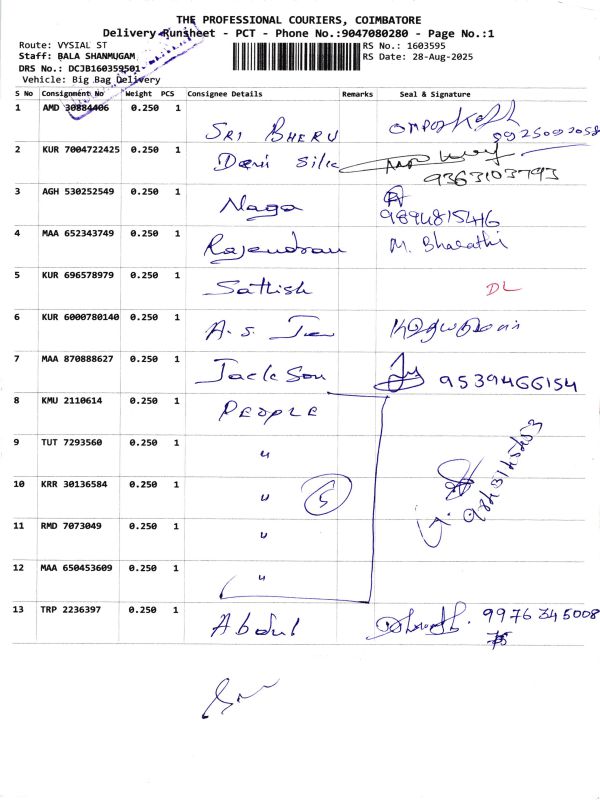 THE PROFESSIONAL COURIERS, COIMBATORE
Delivery Runsheet - PCT - Phone No.:9047080280 - Page No.:1
Route: VYSIAL ST
RS No.: 1603595
Staff: BALA SHANMUGAM
RS Date: 28-Aug-2025
DRS No.: DCJB160359501
Vehicle: Big Bag Delivery
S No Consignment No Weight PCS Consignee Details Remarks Seal & Signature
1 AMD 30884406 0.250 1 SRI BHERU
2 KUR 7004722425 0.250 1 Devi Silk 9363103793
3 AGH 530252549 0.250 1 Naga 9894815416
4 MAA 652343749 0.250 1 Rajendran M. Bharathi
5 KUR 696578979 0.250 1 Sathish DL
6 KUR 6000780140 0.250 1 A. S.
7 MAA 870888627 0.250 1 Jackson 9539466154
8 KMU 2110614 0.250 1 PEOPLE
9 TUT 7293560 0.250 1 "
10 KRR 30136584 0.250 1 " 5
11 RMD 7073049 0.250 1 "
12 MAA 650453609 0.250 1 "
13 TRP 2236397 0.250 1 Abdul 9976345008